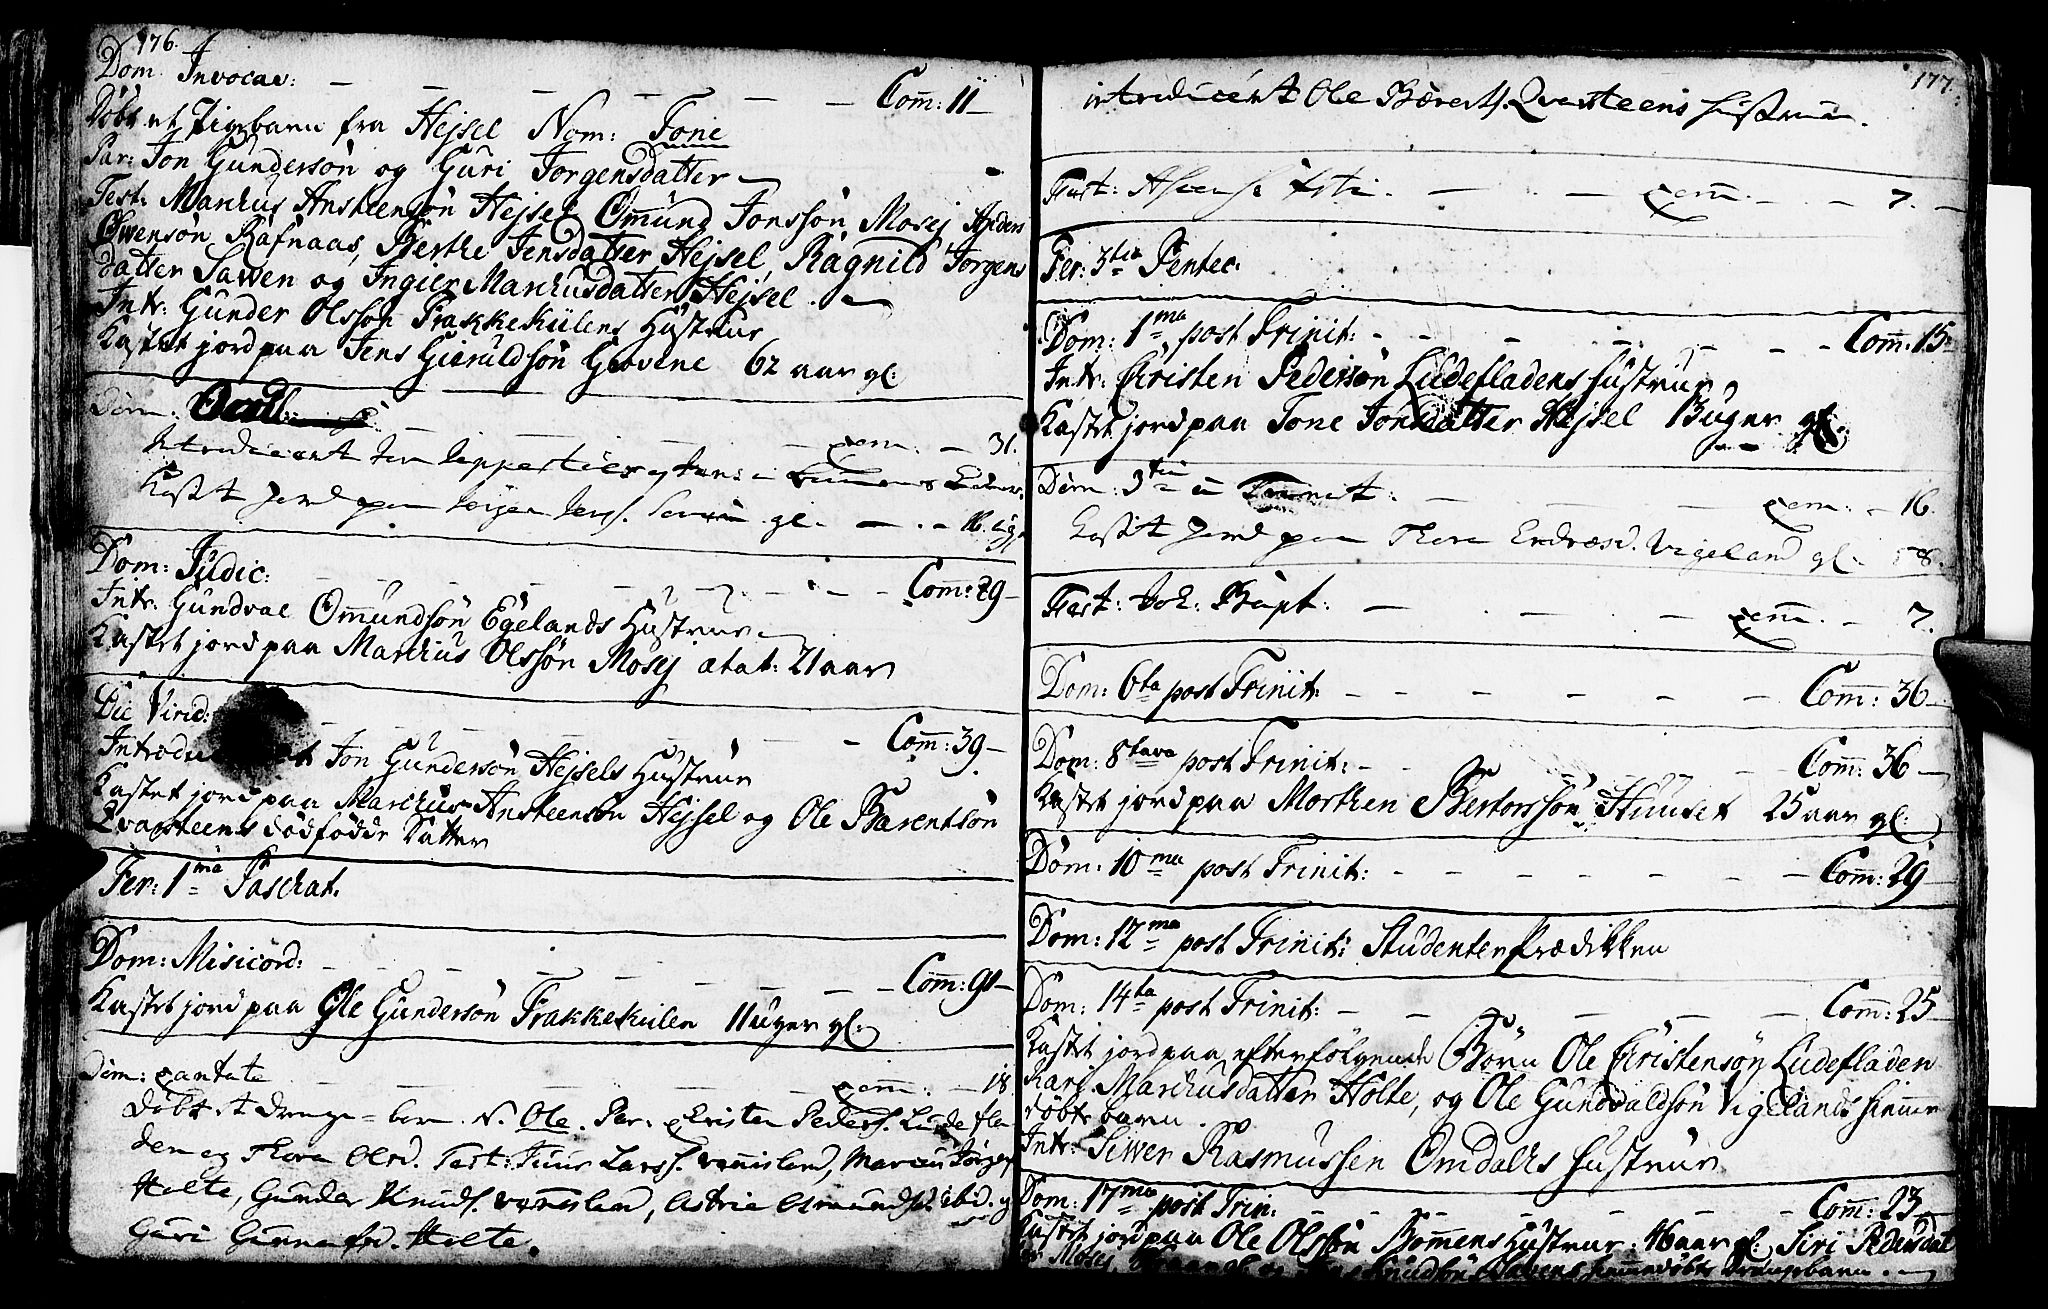 176.
Dom. Invocav: - - - - - - Com: 11 -
Døbt et Pigebarn fra Hejsel Nom: Tone
Par: Jon Gundersøn og Guri Jorgensdatter
Test: Marchus Ansteensøn Hejsel Omund Jonssøn Mosej
Øwensøn Rafnaas, Berthe Jensdatter Hejsel, Ragnild Jorgens
datter Sawen og Ingier Marchusdatter Hejsel.
Intr: Gunder Olssøn Frakkekiilens Hustrue
Kastet jord paa Jens Gieruldsøn Grovene 62 aar gl:
Dom: - - - Com: - 31.
Introduceret
Kastet Jord paa Jørgen Jenss. gl. - 16.
Dom: Judic: - - - - - Com: 29 -
Intr. Gundval Omundsøn Egelands Hustrue
Kastet jord paa Marchus Olssøn Mosej ætat: 21 aar
Die Virid: - - - - Com: 39 -
Jon Gundersøn Hejsels Hustrue
Kastet jord paa Marchus Ansteensøn Hejsel og Ole Barentsøn
Qvarsteens dødfødde Datter
Fer: 1ma Paschat.
Dom: Misicord: - - - - - Com: 91 -
Kastet jord paa Ole Gundersøn Frakkekiilen 11 uger gl:
Dom: Cantate - - - Com: - 18
Døbt et drenge-barn. N. Ole. Par: Christen Peders. Ludefla
den og Thora Olsd. Test: Juur Larss. Vennisland, Marcus Jørgens.
Holte, Gunder Knuds. Vennisland, Astrie Asmundsd. ibid. og
Guri Gunnersd. Holte.
177.
introduceret Ole Berents. Qvarsteens Hustrue.
Fest: Ascens. Xsti. - - - Com. - - 7. -
Fer: 3tia Pentec.
Dom: 1ma post Trinit: - - - - - Com: 15
Intr: Christen Pedersøn Ludefladens Hustrue
Kastet jord paa Tone Jonsdatter Hejsel Uger gl.
Dom: 3tia Trinit: - - - Com: - 16.
Kastet Jord paa Thore Endresd. Vigeland gl. 58.
Fest: Joh: Bapt: - - - Com. - 7.
Dom: 6ta post Trinit: - - - - - Com: 36 -
Dom: 8tava post Trinit: - - - - Com: 36 -
Kastet jord paa Morthen Bertorssøn 25 aar gl:
Dom: 10ma post Trinit: - - - - - - Com: 29
Dom: 12ma post Trinit: Studenter Prædikken
Dom: 14ta post Trinit: - - - - - Com: 25
Kastet jord paa efterfølgende Børn Ole Christensøn Ludefladen
Kari Marchusdatter Holte, og Ole Gundvaldsøn Vigelands hiemme
døbte barn.
Intr: Siwer Rasmussen Omdalks Hustrue
Dom: 17ma post Trin: - - - - - - Com: 23 -
Kastet jord paa Ole Olssøn Bommens Hustrue: 46 aar gl. Siri Pedersdat
ter Mosej hiemmedøbte Drengebarn. -